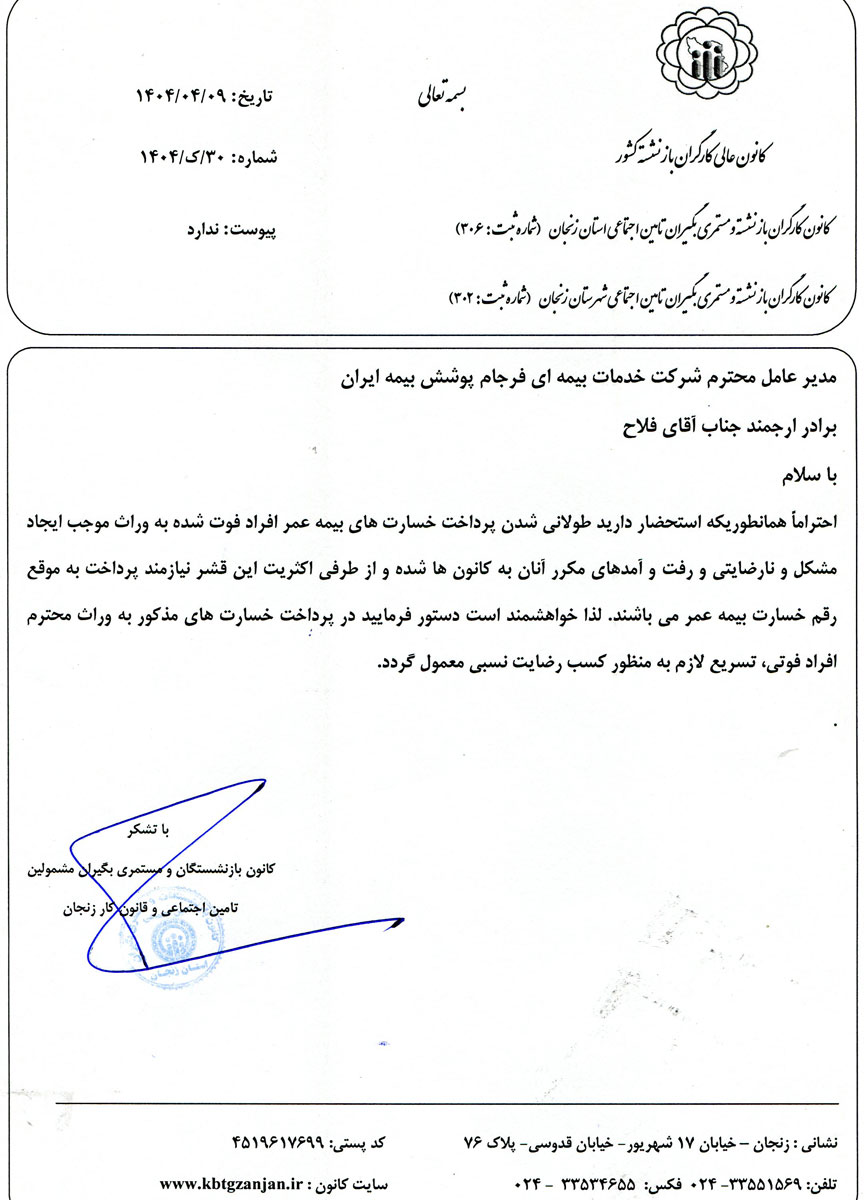 بسمه تعالی
تاریخ: ۱۴۰۴/۰۴/۰۹
کانون عالی کارگران بازنشسته کشور
شماره: ۳۰/ک/۱۴۰۴
کانون کارگران بازنشسته و مستمری بگیران تامین اجتماعی استان زنجان (شماره ثبت: ۳۰۶)
پیوست: ندارد
کانون کارگران بازنشسته و مستمری بگیران تامین اجتماعی شهرستان زنجان (شماره ثبت: ۳۰۲)
مدیر عامل محترم شرکت خدمات بیمه ای فرجام پوشش بیمه ایران
برادر ارجمند جناب آقای فلاح
با سلام
احتراماً همانطوریکه استحضار دارید طولانی شدن پرداخت خسارت های بیمه عمر افراد فوت شده به وراث موجب ایجاد
مشکل و نارضایتی و رفت و آمدهای مکرر آنان به کانون ها شده و از طرفی اکثریت این قشر نیازمند پرداخت به موقع
رقم خسارت بیمه عمر می باشند. لذا خواهشمند است دستور فرمایید در پرداخت خسارت های مذکور به وراث محترم
افراد فوتی، تسریع لازم به منظور کسب رضایت نسبی معمول گردد.
.
با تشکر
کانون بازنشستگان و مستمری بگیران مشمولین
تامین اجتماعی و قانون کار زنجان
استان زنجان
نشانی : زنجان – خیابان ۱۷ شهریور- خیابان قدوسی- پلاک ۷۶
کد پستی: ۴۵۱۹۶۱۷۶۹۹
تلفن: ۳۳۵۵۱۵۶۹- ۰۲۴ فکس: ۳۳۵۳۴۶۵۵ - ۰۲۴
سایت کانون : www.kbtgzanjan.ir